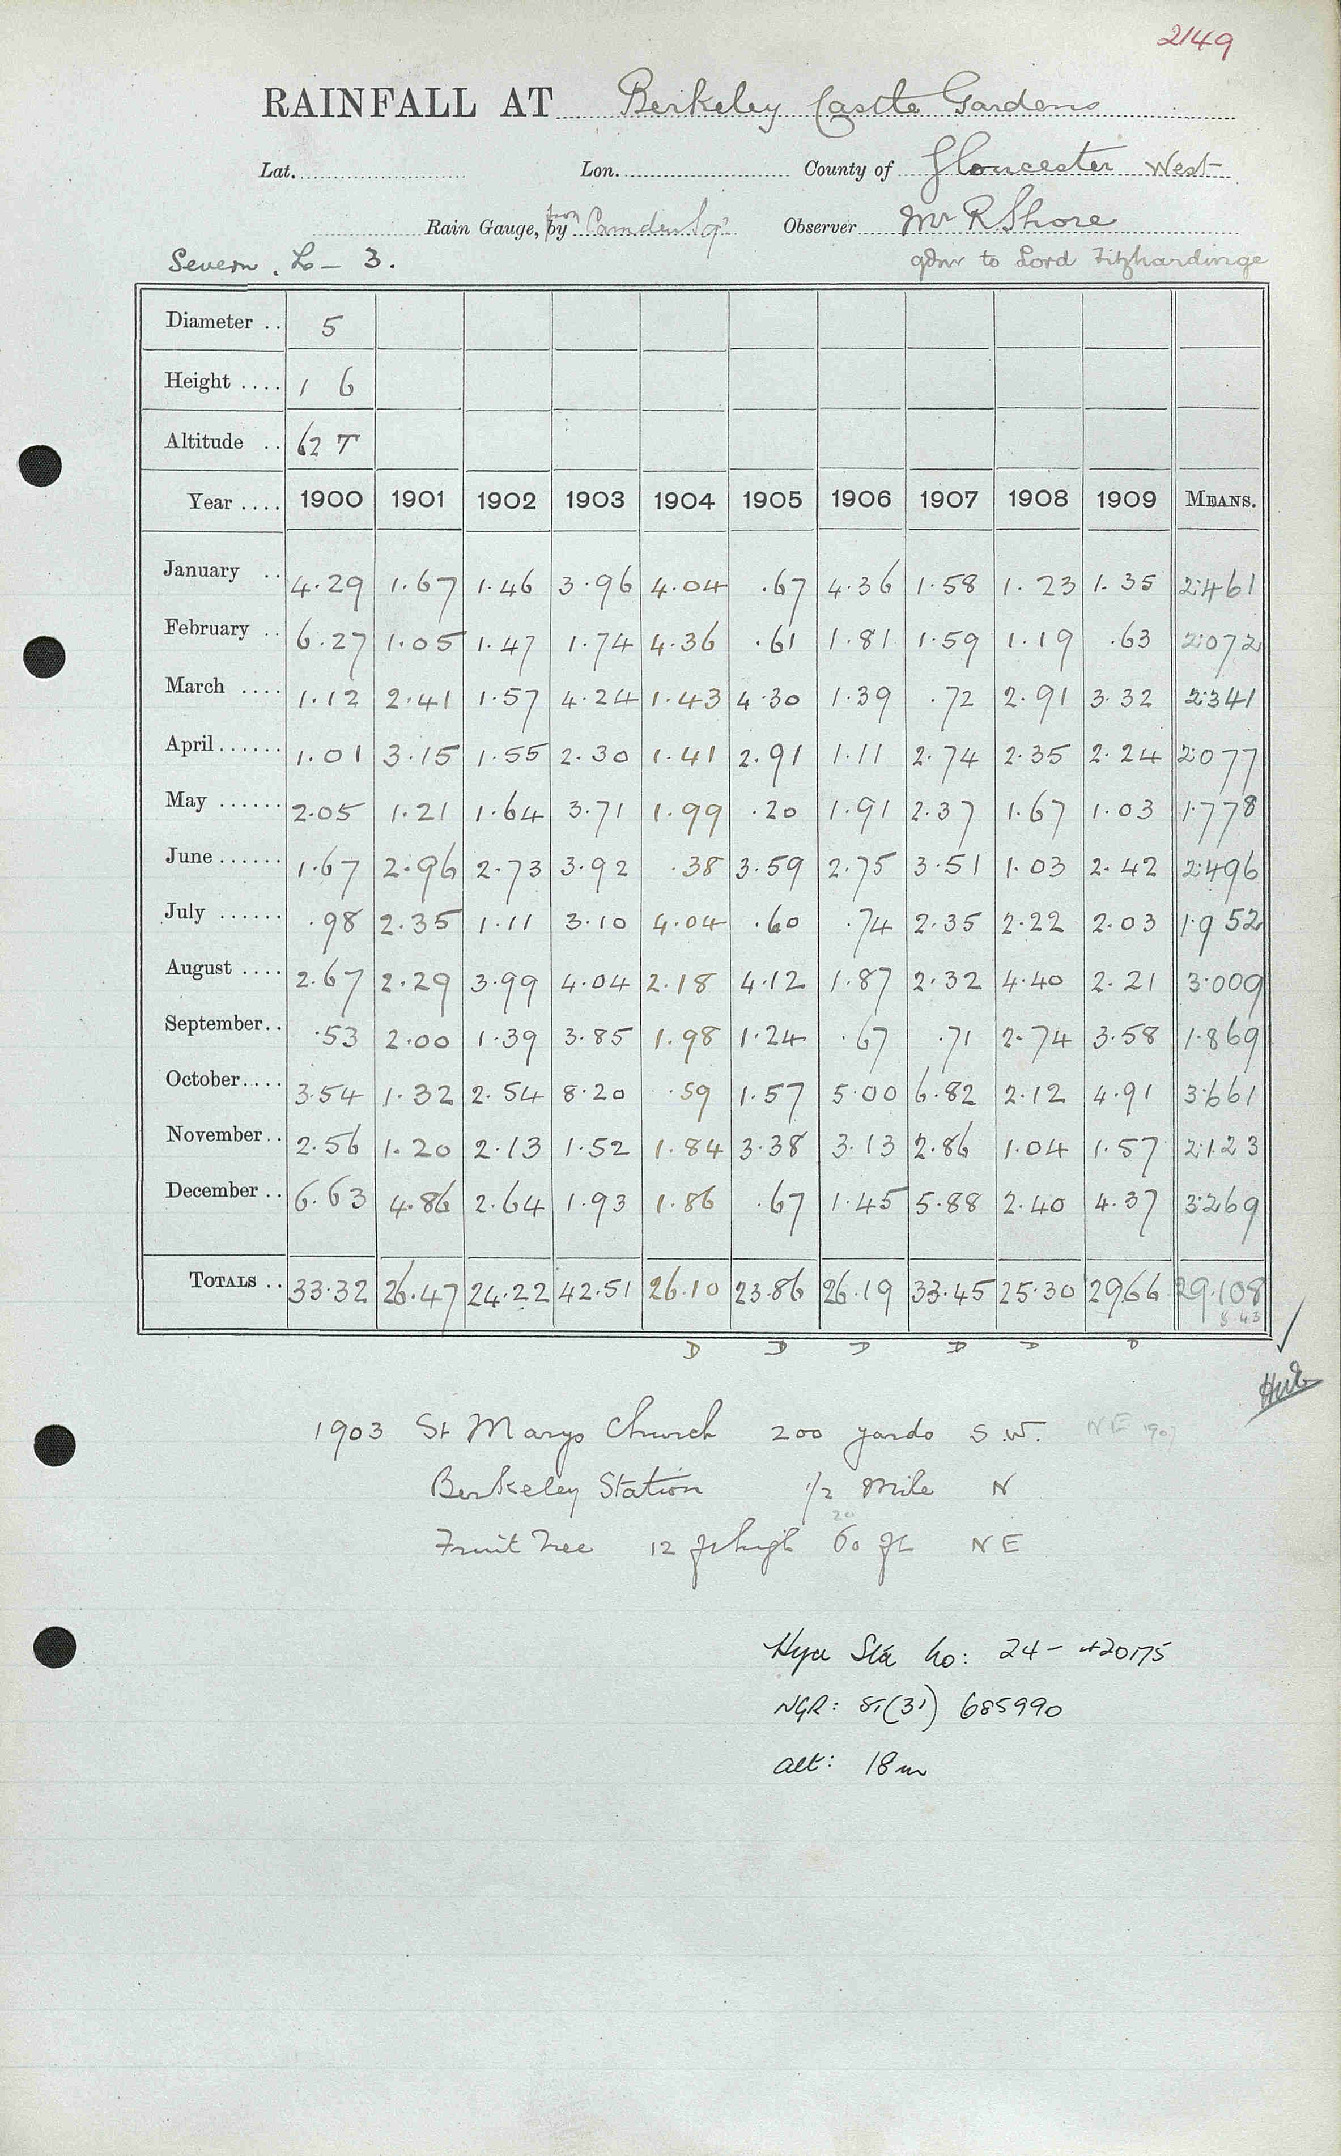 2149
RAINFALL AT Berkeley Castle Gardens
Lat. Lon. County of Gloucester West
Rain Gauge, by from Camden Sq. Observer Mr R Shore
Severn. L – 3. gdnr to Lord Fitzhardinge
Diameter .. 5
Height .... 1 6
Altitude .. 62 T
Year .... 1900 1901 1902 1903 1904 1905 1906 1907 1908 1909 MEANS.
January .. 4.29 1.67 1.46 3.96 4.04 .67 4.36 1.58 1.23 1.35 2.461
February .. 6.27 1.05 1.47 1.74 4.36 .61 1.81 1.59 1.19 .63 2.072
March .... 1.12 2.41 1.57 4.24 1.43 4.30 1.39 .72 2.91 3.32 2.341
April ...... 1.01 3.15 1.55 2.30 1.41 2.91 1.11 2.74 2.35 2.24 2.077
May ...... 2.05 1.21 1.64 3.71 1.99 .20 1.91 2.37 1.67 1.03 1.778
June ...... 1.67 2.96 2.73 3.92 .38 3.59 2.75 3.51 1.03 2.42 2.496
July ...... .98 2.35 1.11 3.10 4.04 .60 .74 2.35 2.22 2.03 1.952
August .... 2.67 2.29 3.99 4.04 2.18 4.12 1.87 2.32 4.40 2.21 3.009
September .. .53 2.00 1.39 3.85 1.98 1.24 .67 .71 2.74 3.58 1.869
October .... 3.54 1.32 2.54 8.20 .59 1.57 5.00 6.82 2.12 4.91 3.661
November .. 2.56 1.20 2.13 1.52 1.84 3.38 3.13 2.86 1.04 1.57 2.123
December .. 6.63 4.86 2.64 1.93 1.86 .67 1.45 5.88 2.40 4.37 3.269
TOTALS .. 33.32 26.47 24.22 42.51 26.10 23.86 26.19 33.45 25.30 29.66 29.108
D D D D D D
1903 St Marys Church 200 yards S.W. NE 1907
Berkeley Station 1/2 mile N
20
Fruit Tree 12 ft high 60 ft NE
Hyd Sta No: 24 – 420175
NGR: ST(31) 685990
alt: 18m